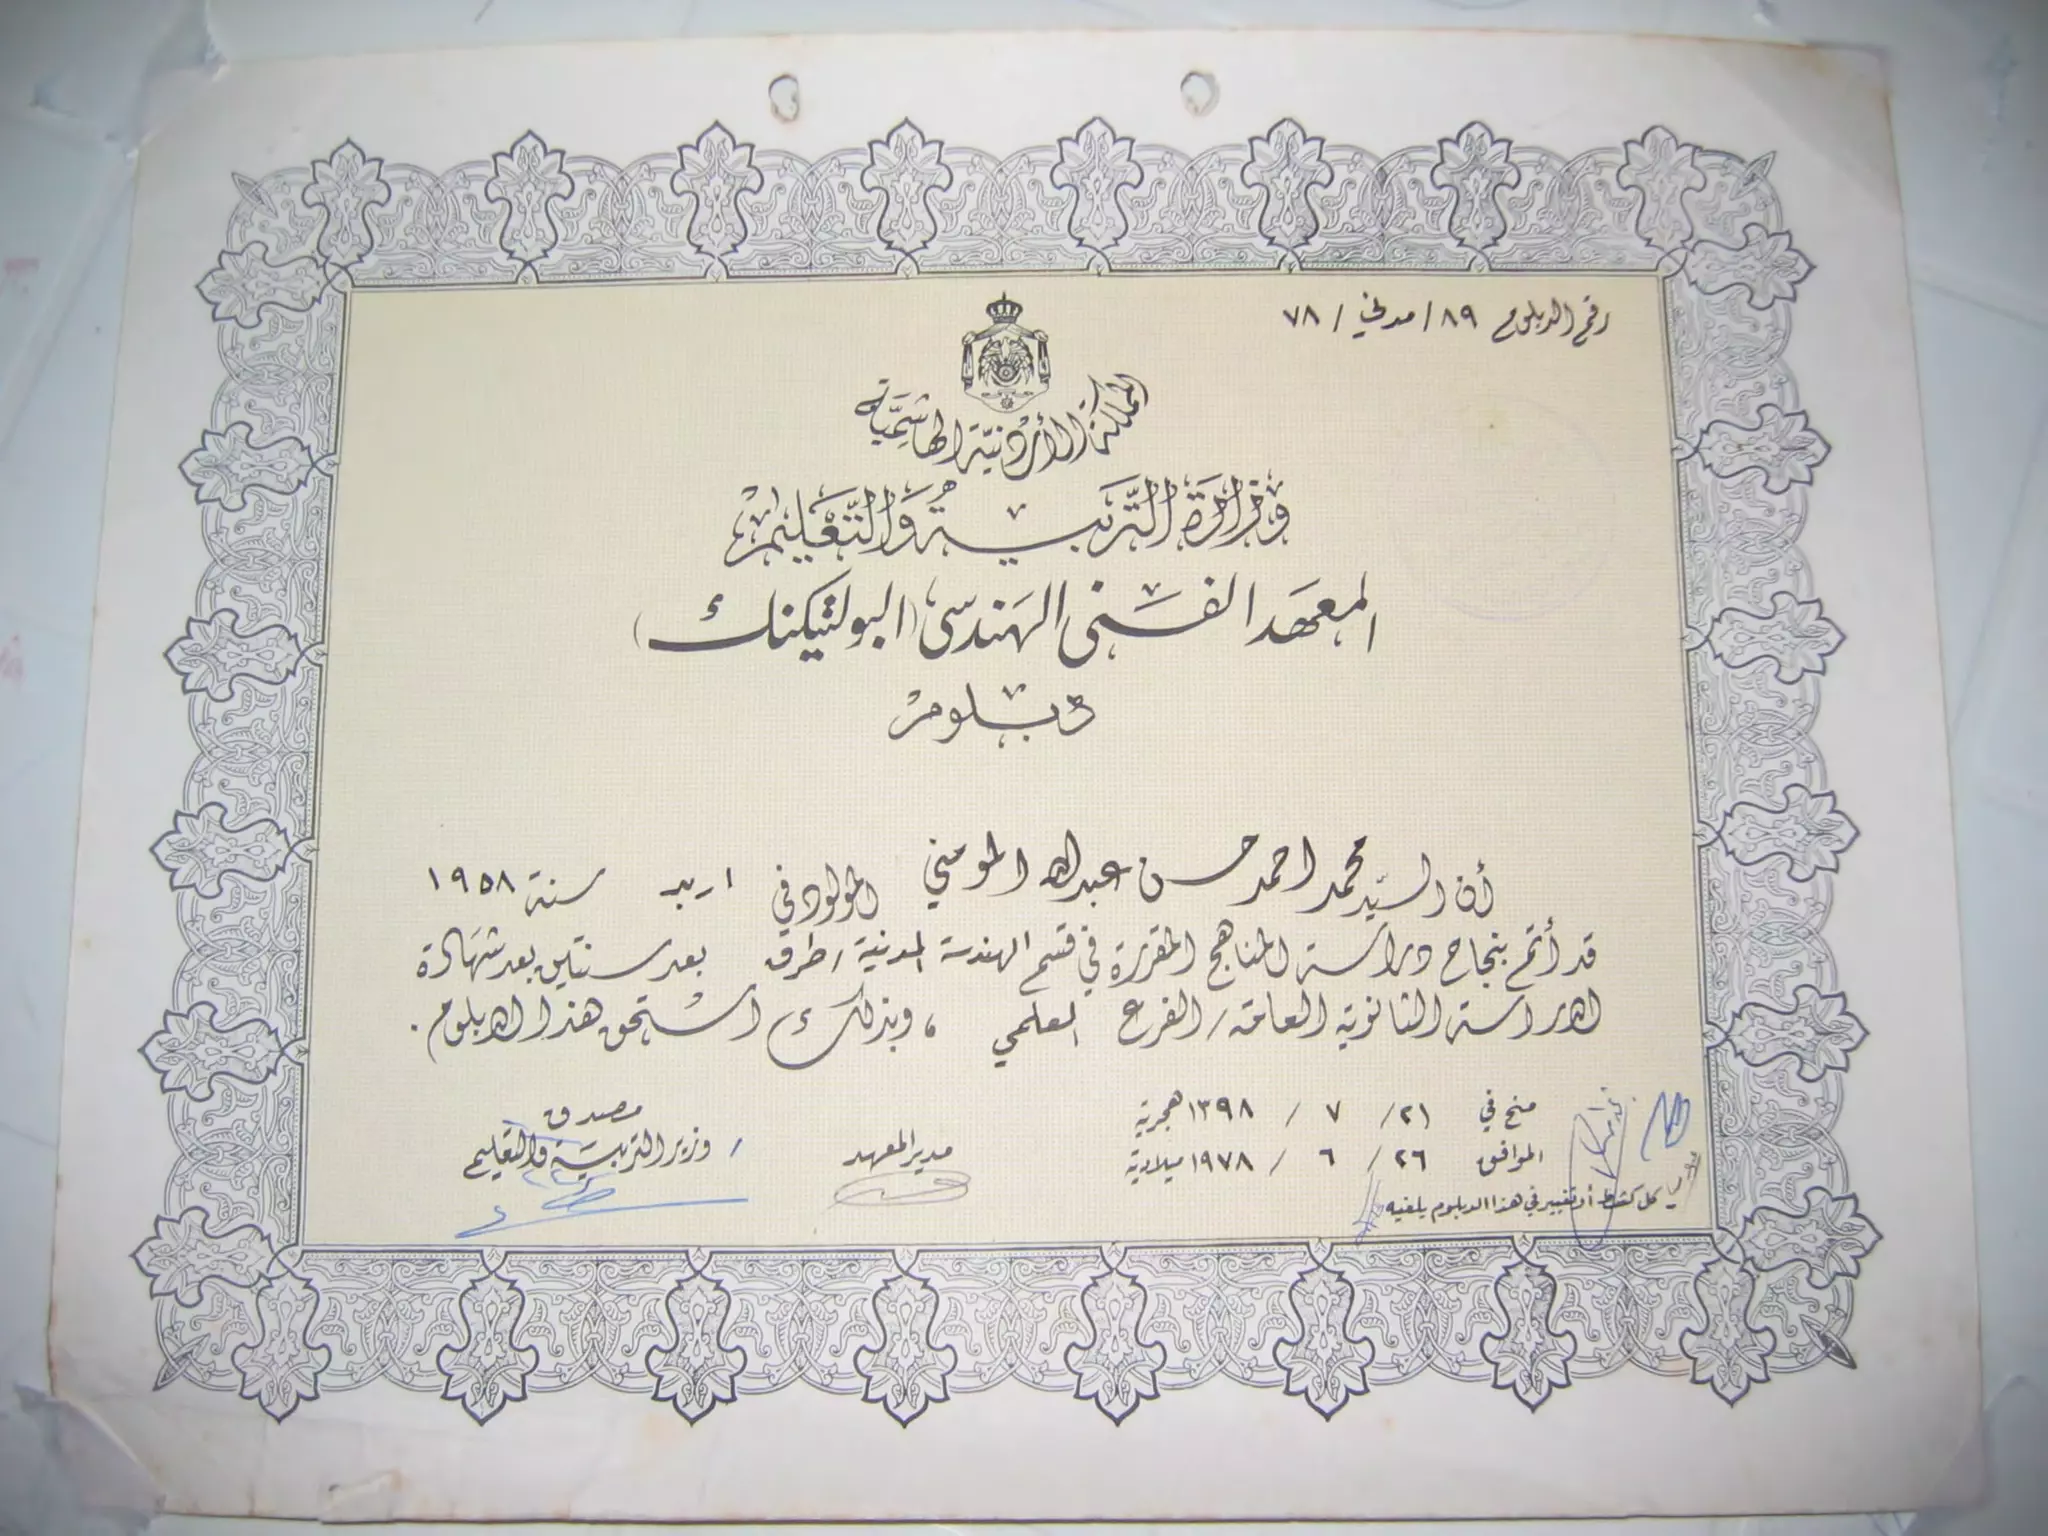 رقم الدبلوم ٨٩ / مدني / ٧٨
المملكة الأردنية الهاشمية
وزارة التربية والتعليم
المعهد الفني الهندسي (البولتيكنك)
دبلوم
أن السيد محمد احمد حسن عبدالله المومني المولود في اربد سنة ١٩٥٨
قد أتم بنجاح دراسة المناهج المقررة في قسم الهندسة المدنية / طرق بعد سنتين بعد شهادة
الدراسة الثانوية العامة / الفرع العلمي ، وبذلك استحق هذا الدبلوم .
منح في ٢١ / ٧ / ١٣٩٨ هجرية
الموافق ٢٦ / ٦ / ١٩٧٨ ميلادية
مدير المعهد
مصدق
/ وزير التربية والتعليم
كل كشط أو تغيير في هذا الدبلوم يلغيه